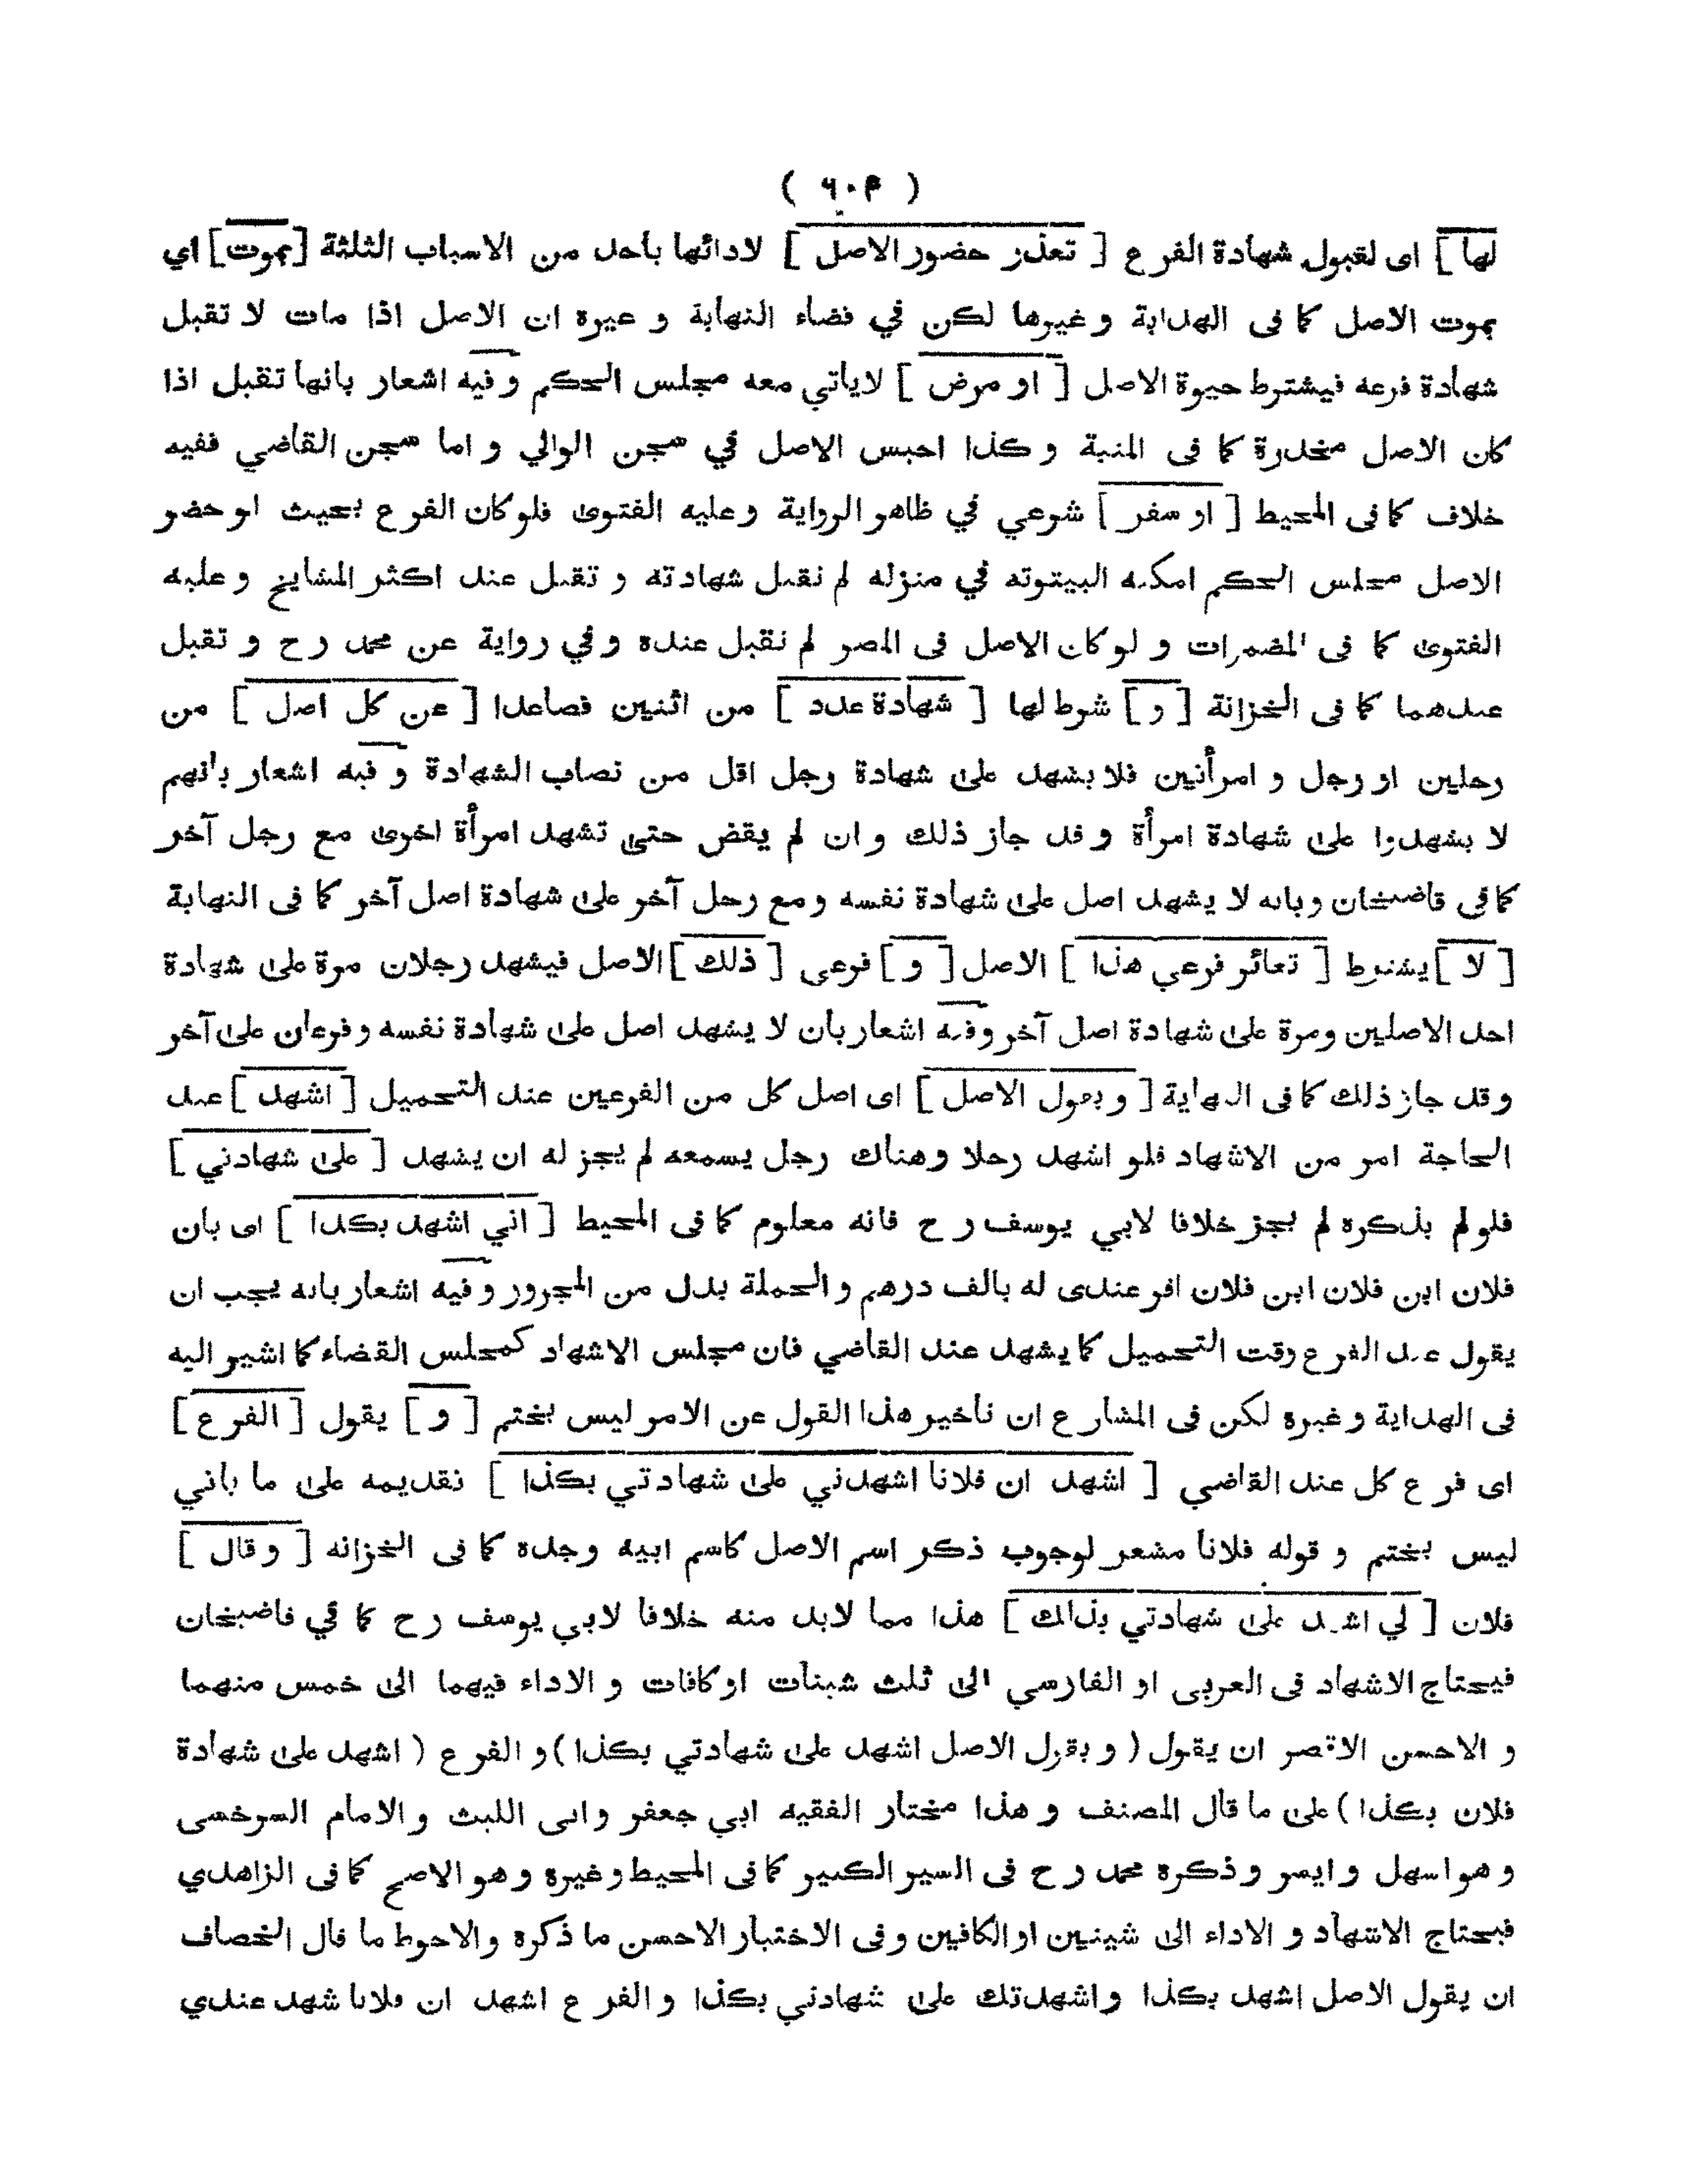 ( ۶۰۴ )
لها ] اى لقبول شهادة الفرع [ تعذر حضور الاصل ] لادائها باحد من الاسباب الثلثة [ بموت ] اي
بموت الاصل كما فى الهداية و غيرها لكن في قضاء النهاية و غيره ان الاصل اذا مات لا تقبل
شهادة فرعه فيشترط حيوة الاصل [ او مرض ] لاياتي معه مجلس الحكم و فيه اشعار بانها تقبل اذا
كان الاصل مخدرة كما فى المنية و كذا احبس الاصل في سجن الوالي و اما سجن القاضي ففيه
خلاف كما فى المحيط [ او سفر ] شرعي في ظاهر الرواية و عليه الفتوى فلو كان الفرع بحيث لو حضر
الاصل مجلس الحكم امكنه البيتوته في منزله لم تقبل شهادته و تقبل عند اكثر المشايخ و عليه
الفتوى كما فى المضمرات و لو كان الاصل فى المصر لم تقبل عنده و في رواية عن محمد رح و تقبل
عندهما كما فى الخزانة [ و ] شرط لها [ شهادة عدد ] من اثنين فصاعدا [ عن كل اصل ] من
رجلين او رجل و امرأتين فلا يشهد على شهادة رجل اقل من نصاب الشهادة و فيه اشعار بانهم
لا يشهدوا على شهادة امرأة و قد جاز ذلك و ان لم يقض حتى تشهد امرأة اخرى مع رجل آخر
كما في قاضيخان و بانه لا يشهد اصل على شهادة نفسه و مع رجل آخر على شهادة اصل آخر كما فى النهاية
[ لا ] يشترط [ تغائر فرعي هذا ] الاصل [ و ] فرعى [ ذلك ] الاصل فيشهد رجلان مرة على شهادة
احد الاصلين و مرة على شهادة اصل آخر و فيه اشعار بان لا يشهد اصل على شهادة نفسه و فرعان على آخر
و قد جاز ذلك كما فى النهاية [ و يقول الاصل ] اى اصل كل من الفرعين عند التحميل [ اشهد ] عند
الحاجة امر من الاشهاد فلو اشهد رجلا و هناك رجل يسمعه لم يجز له ان يشهد [ على شهادتي ]
فلو لم يذكره لم يجز خلافا لابي يوسف رح فانه معلوم كما فى المحيط [ اني اشهد بكذا ] اى بان
فلان ابن فلان ابن فلان اقر عندى له بالف درهم و الجملة بدل من المجرور و فيه اشعار بانه يجب ان
يقول عند الفرع وقت التحميل كما يشهد عند القاضي فان مجلس الاشهاد كمجلس القضاء كما اشير اليه
فى الهداية و غيره لكن فى المشارع ان تأخير هذا القول عن الامر ليس بختم [ و ] يقول [ الفرع ]
اى فرع كل عند القاضي [ اشهد ان فلانا اشهدني على شهادتي بكذا ] تقديمه على ما ياتي
ليس بختم و قوله فلانا مشعر لوجوب ذكر اسم الاصل كاسم ابيه و جده كما فى الخزانه [ و قال ]
فلان [ لي اشهد على شهادتي بذالك ] هذا مما لابد منه خلافا لابي يوسف رح كما في قاضيخان
فيحتاج الاشهاد فى العربى او الفارسي الى ثلث شينات او كافات و الاداء فيهما الى خمس منهما
و الاحسن الاقصر ان يقول ( و يقول الاصل اشهد على شهادتي بكذا ) و الفرع ( اشهد على شهادة
فلان بكذا ) على ما قال المصنف و هذا مختار الفقيه ابي جعفر و ابى الليث و الامام السرخسى
و هو اسهل و ايسر و ذكره محمد رح فى السير الكبير كما فى المحيط و غيره و هو الاصح كما فى الزاهدي
فيحتاج الاشهاد و الاداء الى شينين او الكافين و فى الاختيار الاحسن ما ذكره و الاحوط ما قال الخصاف
ان يقول الاصل اشهد بكذا و اشهدتك على شهادتي بكذا و الفرع اشهد ان فلانا شهد عندي